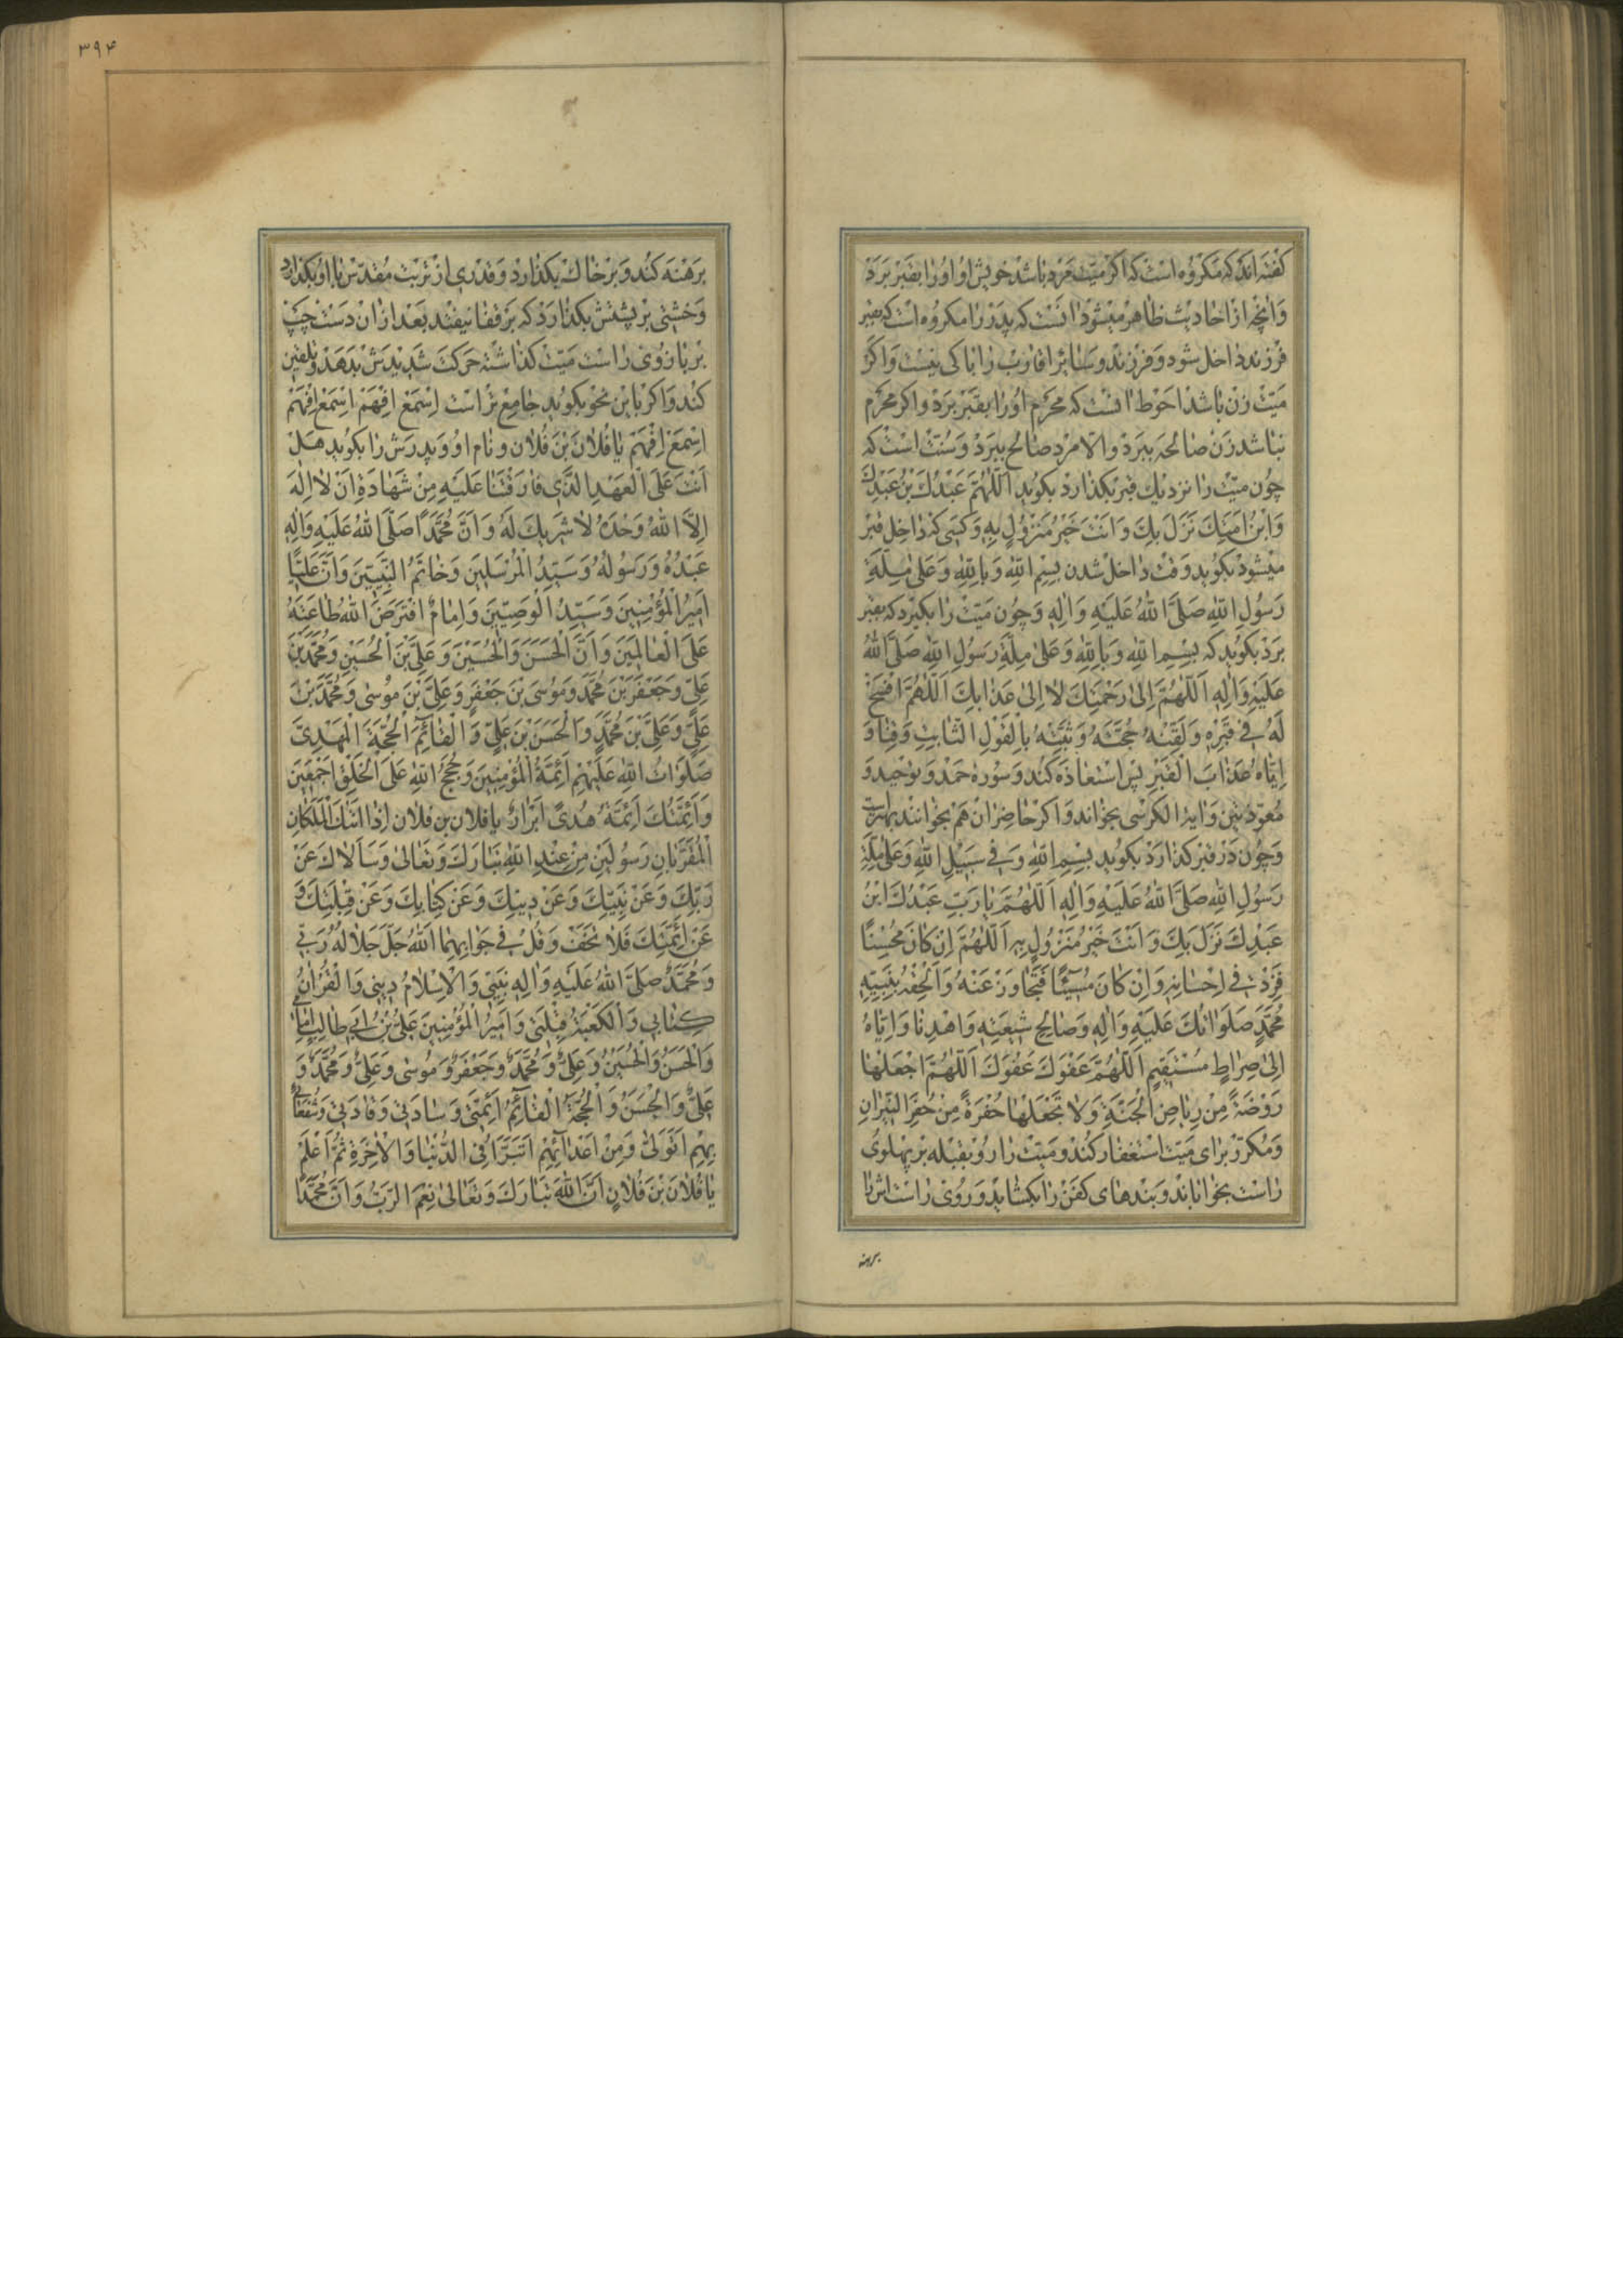 کفته اند که مکروه است که اکر میّت مرد باشد خویش او او را بقبر برد
وانچه از احادیث ظاهر میشود انست که پدر را مکروه است که بقبر
فرزند داخل شود و فرزند و سایر اقارب را باکی نیست واکر
میّت زن باشد احوط انست که محرم او را بقبر برد واکر محرم
نباشد زن صالحه ببرد والا مرد صالح ببرد و سنّت است که
چون میّت را نزدیک قبر بکذارد بکوید اَللّٰهُمَّ عَبْدُكَ بْنُ عَبْدِكَ
وَابْنُ اَمَتِكَ نَزَلَ بِكَ وَاَنْتَ خَيْرُ مَنْزُولٍ بِهِ وکسی که داخل قبر
میشود بکوید وقت داخل شدن بِسْمِ اللّٰهِ وَبِاللّٰهِ وَعَلىٰ مِلَّةِ
رَسُولِ اللّٰهِ صَلَّى اللّٰهُ عَلَيْهِ وَاٰلِهِ وچون میّت را بکیرد که بقبر
برد بکوید که بِسْمِ اللّٰهِ وَبِاللّٰهِ وَعَلىٰ مِلَّةِ رَسُولِ اللّٰهِ صَلَّى اللّٰهُ
عَلَيْهِ وَاٰلِهِ اَللّٰهُمَّ اِلىٰ رَحْمَتِكَ لا اِلىٰ عَذابِكَ اَللّٰهُمَّ افْسَحْ
لَهُ فى قَبْرِهِ وَلَقِّنْهُ حُجَّتَهُ وَثَبِّتْهُ بِالْقَوْلِ الثّابِتِ وَقِنا وَ
اِيّاهُ عَذابَ الْقَبْرِ پس استعاذه کند و سوره حمد و توحید و
معوّذتین وایة الکرسی بخواند واکر حاضران هم بخوانند بهتر است
وچون در قبر کذارد بکوید بِسْمِ اللّٰهِ وَفى سَبيلِ اللّٰهِ وَعَلىٰ مِلَّةِ
رَسُولِ اللّٰهِ صَلَّى اللّٰهُ عَلَيْهِ وَاٰلِهِ اَللّٰهُمَّ يا رَبِّ عَبْدُكَ ابْنُ
عَبْدِكَ نَزَلَ بِكَ وَاَنْتَ خَيْرُ مَنْزُولٍ بِهِ اَللّٰهُمَّ اِنْ كانَ مُحْسِنًا
فَزِدْ فى اِحْسانِهِ وَاِنْ كانَ مُسيٓئًا فَتَجاوَزْ عَنْهُ وَاَلْحِقْهُ بِنَبِيِّهِ
مُحَمَّدٍ صَلَواتُكَ عَلَيْهِ وَاٰلِهِ وَصالِحِ شيعَتِهِ وَاهْدِنا وَاِيّاهُ
اِلىٰ صِراطٍ مُسْتَقيمٍ اَللّٰهُمَّ عَفْوَكَ عَفْوَكَ اَللّٰهُمَّ اجْعَلْها
رَوْضَةً مِنْ رِياضِ الْجَنَّةِ وَلا تَجْعَلْها حُفْرَةً مِنْ حُفَرِ النّيرانِ
ومکرّر برای میّت استغفار کند و میّت را رو بقبله بر پهلوی
راست بخواباند و بندهای کفن را بکشاید و روی راستش را
برهنه
۳۹۴
برهنه کند و بر خاک بکذارد وقدری از تربت مقدّس با او بکذارد
وخشتی بر پشتش بکذارد که بر قفا نیفتد بعد از ان دست چپ
بر بازوی راست میّت کذاشته حرکت شدیدش بدهد وتلقین
کند واکر باین نحو بکوید جامع تراست اِسْمَعْ اِفْهَمْ اِسْمَعْ اِفْهَمْ
اِسْمَعْ اِفْهَمْ يا فُلانَ بْنَ فُلانٍ ونام او و پدرش را بکوید هَلْ
اَنْتَ عَلَى الْعَهْدِ الَّذى فارَقْتَنا عَلَيْهِ مِنْ شَهادَةِ اَنْ لا اِلٰهَ
اِلَّا اللّٰهُ وَحْدَهُ لا شَريكَ لَهُ وَاَنَّ مُحَمَّدًا صَلَّى اللّٰهُ عَلَيْهِ وَاٰلِهِ
عَبْدُهُ وَرَسُولُهُ وَسَيِّدُ الْمُرْسَلينَ وَخاتَمُ النَّبِيّينَ وَاَنَّ عَلِيًّا
اَميرُ الْمُؤْمِنينَ وَسَيِّدُ الْوَصِيّينَ وَاِمامٌ افْتَرَضَ اللّٰهُ طاعَتَهُ
عَلَى الْعالَمينَ وَاَنَّ الْحَسَنَ وَالْحُسَيْنَ وَعَلِيَّ بْنَ الْحُسَيْنِ وَمُحَمَّدَ بْنَ
عَلِيٍّ وَجَعْفَرَ بْنَ مُحَمَّدٍ وَمُوسَى بْنَ جَعْفَرٍ وَعَلِيَّ بْنَ مُوسىٰ وَمُحَمَّدَ بْنَ
عَلِيٍّ وَعَلِيَّ بْنَ مُحَمَّدٍ وَالْحَسَنَ بْنَ عَلِيٍّ وَالْقآئِمَ الْحُجَّةَ الْمَهْدِىَّ
صَلَواتُ اللّٰهِ عَلَيْهِمْ اَئِمَّةُ الْمُؤْمِنينَ وَحُجَجُ اللّٰهِ عَلَى الْخَلْقِ اَجْمَعينَ
وَاَئِمَّتُكَ اَئِمَّةُ هُدىً اَبْرارٌ يا فلان بن فلان اِذا اَتاكَ الْمَلَكانِ
الْمُقَرَّبانِ رَسُولَيْنِ مِنْ عِنْدِ اللّٰهِ تَبارَكَ وَتَعالىٰ وَسَاَلاكَ عَنْ
رَبِّكَ وَعَنْ نَبِيِّكَ وَعَنْ دينِكَ وَعَنْ كِتابِكَ وَعَنْ قِبْلَتِكَ وَ
عَنْ اَئِمَّتِكَ فَلا تَخَفْ وَقُلْ فى جَوابِهِما اَللّٰهُ جَلَّ جَلالُهُ رَبّى
وَمُحَمَّدٌ صَلَّى اللّٰهُ عَلَيْهِ وَاٰلِهِ نَبِيّى وَالْاِسْلامُ دينى وَالْقُرْاٰنُ
كِتابى وَالْكَعْبَةُ قِبْلَتى وَاَميرُ الْمُؤْمِنينَ عَلِيُّ بْنُ اَبي طالِبٍ اِمامى
وَالْحَسَنُ وَالْحُسَيْنُ وَعَلِيٌّ وَمُحَمَّدٌ وَجَعْفَرٌ وَمُوسىٰ وَعَلِيٌّ وَمُحَمَّدٌ وَ
عَلِيٌّ وَالْحَسَنُ وَالْحُجَّةُ الْقآئِمُ اَئِمَّتى وَسادَتى وَقادَتى وَشُفَعائى
بِهِمْ اَتَوَلّىٰ وَمِنْ اَعْدآئِهِمْ اَتَبَرَّاُ فِى الدُّنْيا وَالْاٰخِرَةِ ثُمَّ اعْلَمْ
يا فُلانَ بْنَ فُلانٍ اَنَّ اللّٰهَ تَبارَكَ وَتَعالىٰ نِعْمَ الرَّبُّ وَاَنَّ مُحَمَّدًا